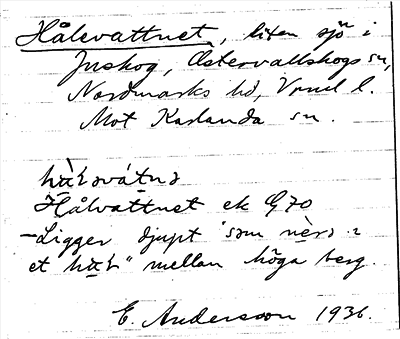 Hålevattnet, liten sjö i
Inskog, Östervallskogs sn,
Nordmarks hd, Vrml l.
Mot Karlanda sn.
Hålvattnet ek G70
-Ligger djupt "som nèrə i
et hɑ̀ɫ" mellan höga berg.
E. Andersson 1936.